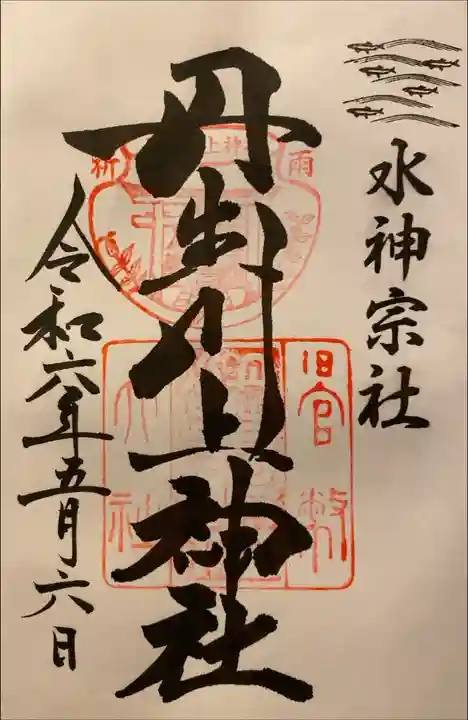 水神宗社
丹生川上神社
令和六年五月六日
旧官幣
大社
雨
祈